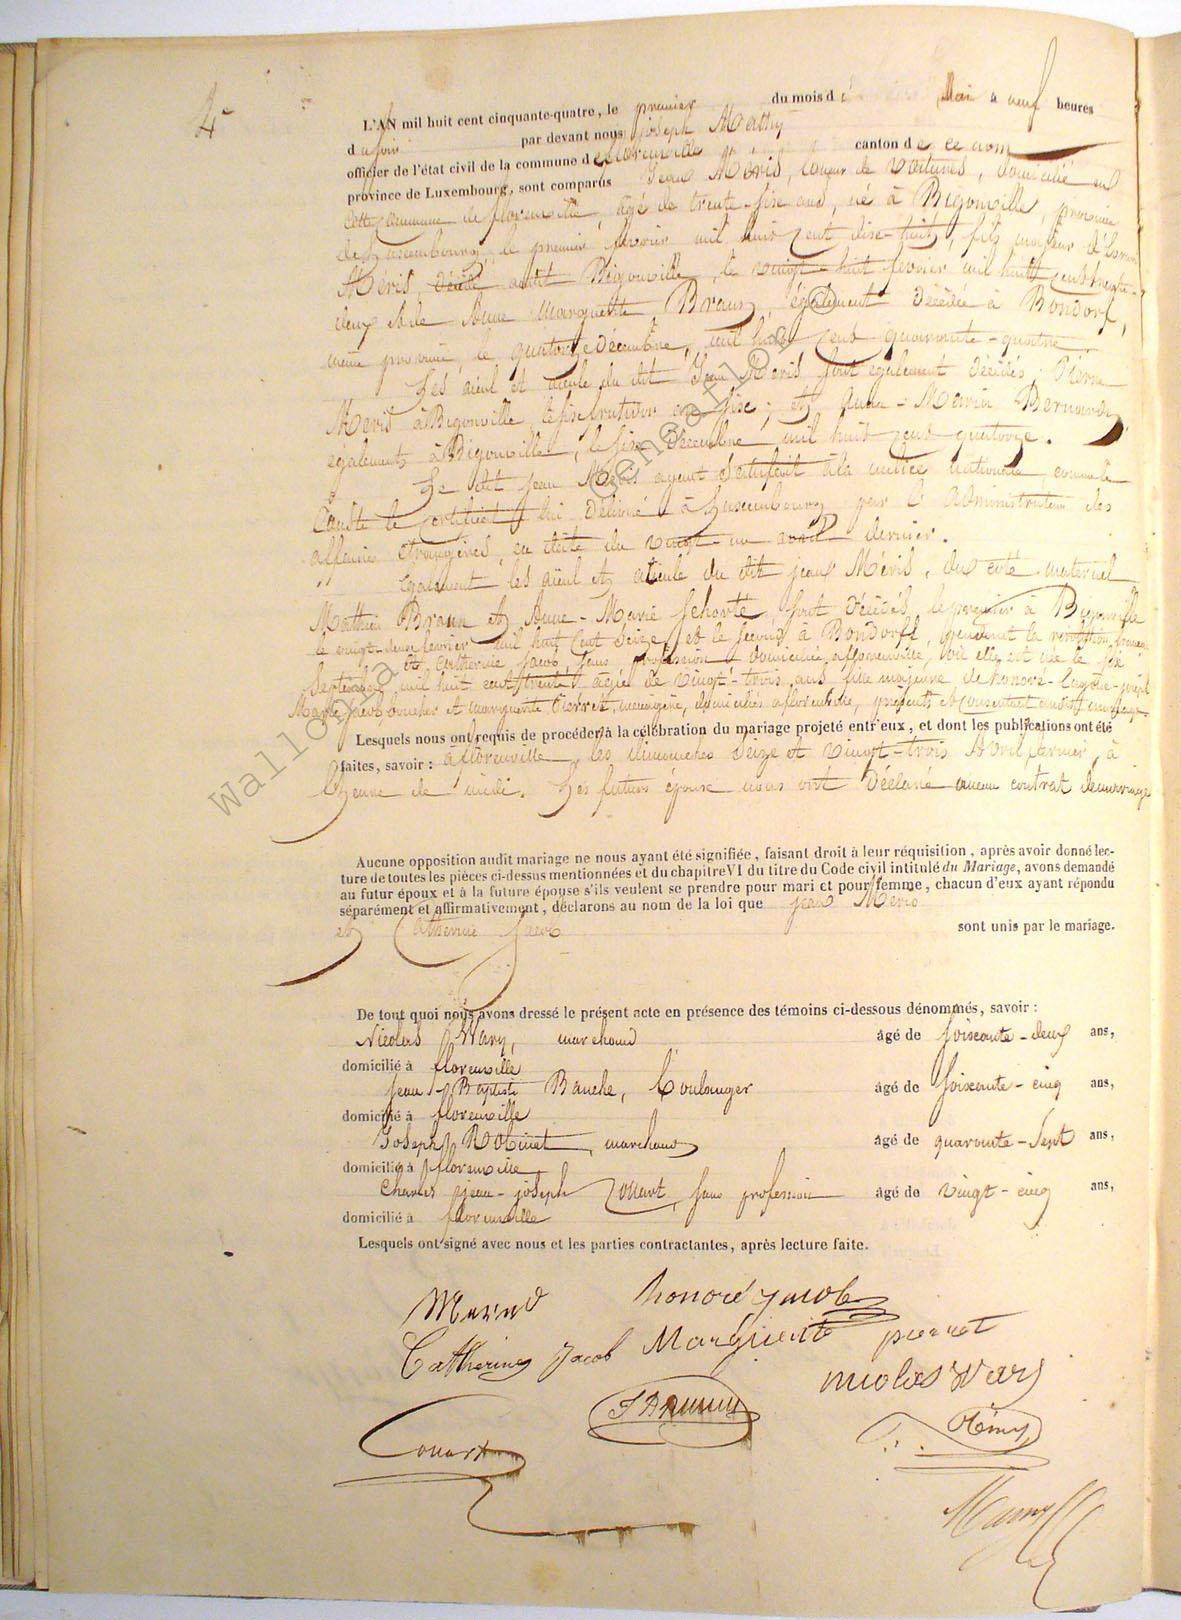 4
L'AN mil huit cent cinquante-quatre, le premier du mois de Mai à neuf heures
du soir par devant nous joseph Mathy
officier de l'état civil de la commune de florenville canton de ce nom
province de Luxembourg, sont comparus Jean Méris, loueur de voitures, domicilié en
cette commune de florenville, âgé de trente-six ans, né à Bigonville, province
de Luxembourg, le premier février mil huit cent dix-huit, fils majeur de
Méris, décédé audit Bigonville, le vingt-huit février mil huit cent trente-
deux et de Anne Marguerite Braun, également décédée à Bondorf,
même province, le quatorze Décembre, mil huit cent quarante-quatre
Les aïeul et aïeule du dit Jean Méris sont également décédés: Pierre
Meris à Bigonville, le six fructidor an six; et Anne-Maria Bernardy
également à Bigonville, le six Décembre mil huit cent quatorze.
Le dit Jean Méris ayant satisfait à la milice nationale comme le
Constate le certificat lui délivré à Luxembourg par l'Administrateur des
affaires étrangères, en date du vingt-un avril dernier.
Egalement les aïeul et aïeule du dit jean Méris, du coté maternel
Mathieu Braun et Anne-Marie Schorté, sont Décédés, le premier à Bigonville
le vingt-deux février mil huit cent seize et le second à Bondorff, pendant la révolution française
et Catherine Jacob, sans profession domiciliée à florenville, où elle est née le six
Septembre mil huit cent trente, agée de vingt-trois ans fille majeure de honoré-
Marie Jacob boucher et marguerite Pierret, ménagère, domiciliés à florenville, présents et consentant audit mariage.
Lesquels nous ont requis de procéder à la célébration du mariage projeté entr'eux, et dont les publications ont été
faites, savoir: à florenville, les dimanches seize et vingt-trois Avril dernier, à
l'heure de midi. Les futurs époux nous ont Déclaré aucun contrat de mariage
Aucune opposition audit mariage ne nous ayant été signifiée, faisant droit à leur réquisition, après avoir donné lec-
ture de toutes les pièces ci-dessus mentionnées et du chapitre VI du titre du Code civil intitulé du Mariage, avons demandé
au futur époux et à la future épouse s'ils veulent se prendre pour mari et pour femme, chacun d'eux ayant répondu
séparément et affirmativement, déclarons au nom de la loi que jean Méris
et Catherine Jacob sont unis par le mariage.
De tout quoi nous avons dressé le présent acte en présence des témoins ci-dessous dénommés, savoir:
Nicolas Wary, marchand âgé de soixante-deux ans,
domicilié à florenville
Jean-Baptiste Banche, boulanger âgé de soixante-cinq ans,
domicilié à florenville
Joseph Robinet, marchand âgé de quarante-sept ans,
domicilié à florenville
Charles jean-joseph Conart, sans profession âgé de vingt-cinq ans,
domicilié à florenville
Lesquels ont signé avec nous et les parties contractantes, après lecture faite.
honoré jacob
Catherine Jacob Marguerite pierret
nicolas wary
Conart
Wallonia © Geneaflor